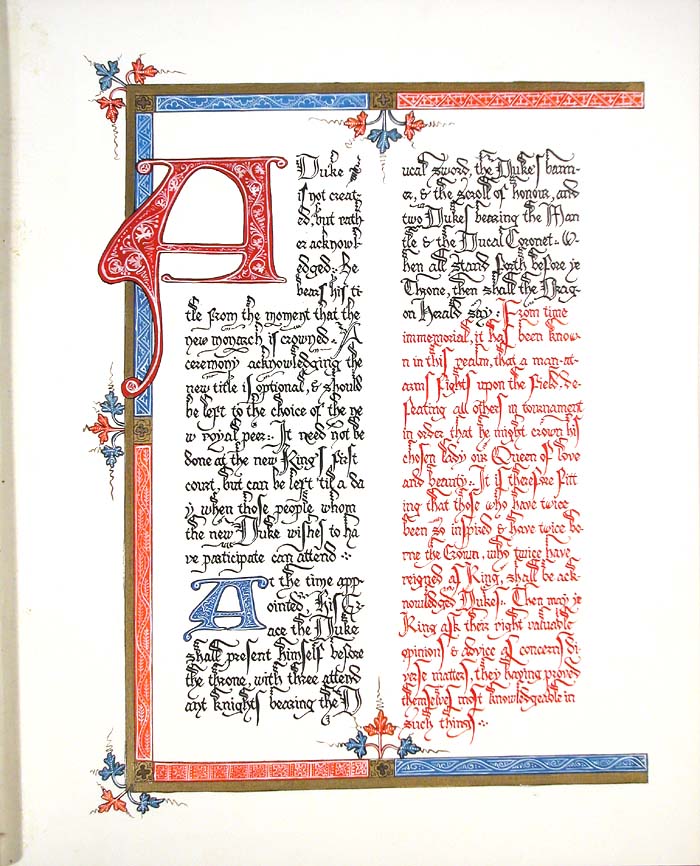 A Duke
is not creat-
ed, but rath
er acknowl-
edged:. He
bears his ti-
tle from the moment that the
new monarch is crowned. A
ceremony acknowledging the
new title is optional, & should
be left to the choice of the ne
w royal peer:. It need not be
done at the new King's first
court, but can be left 'til a da
y when those people whom
the new Duke wishes to ha
ve participate can attend :.
At the time app
ointed, His Gr-
ace the Duke
shall present himself before
the throne, with three attend
ant knights bearing the D
ucal sword, the Duke's bann-
er, & the scroll of honour, and
two Dukes bearing the Man
tle & the Ducal Coronet:. W-
hen all stand forth before ye
Throne, then shall the Drag-
on Herald say: From time
immemorial, it has been know-
n in this realm, that a man-at-
arms fights upon the field, de-
feating all others in tournament
in order that he might crown his
chosen lady our Queen of love
and beauty:. It is therefore fitt
ing that those who have twice
been so inspired & have twice bo-
rne the Crown, who twice have
reigned as King, shall be ack-
nowledged Dukes:. Then may ye
King ask their right valuable
opinions & advice as concerns di
verse matters, they having proved
themselves most knowledgeable in
such things :.